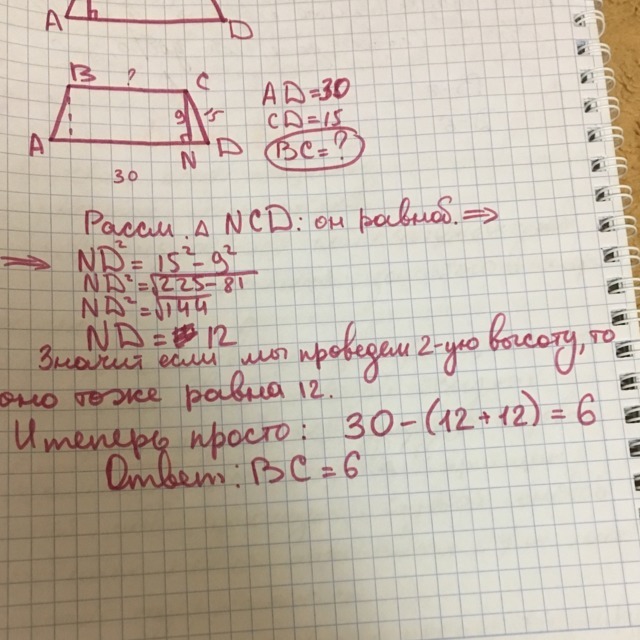 A h D
B ? C
9 15
A N D
30
AD=30
CD=15
BC=?
Рассм. △ NCD: он равноб. ⇒
⇒ ND²= 15² - 9²
ND²=√225-81
ND²=√144
ND = 12
Значит если мы проведем 2-ую высоту, то
оно тоже равна 12.
И теперь просто: 30-(12+12)=6
Ответ: BC=6